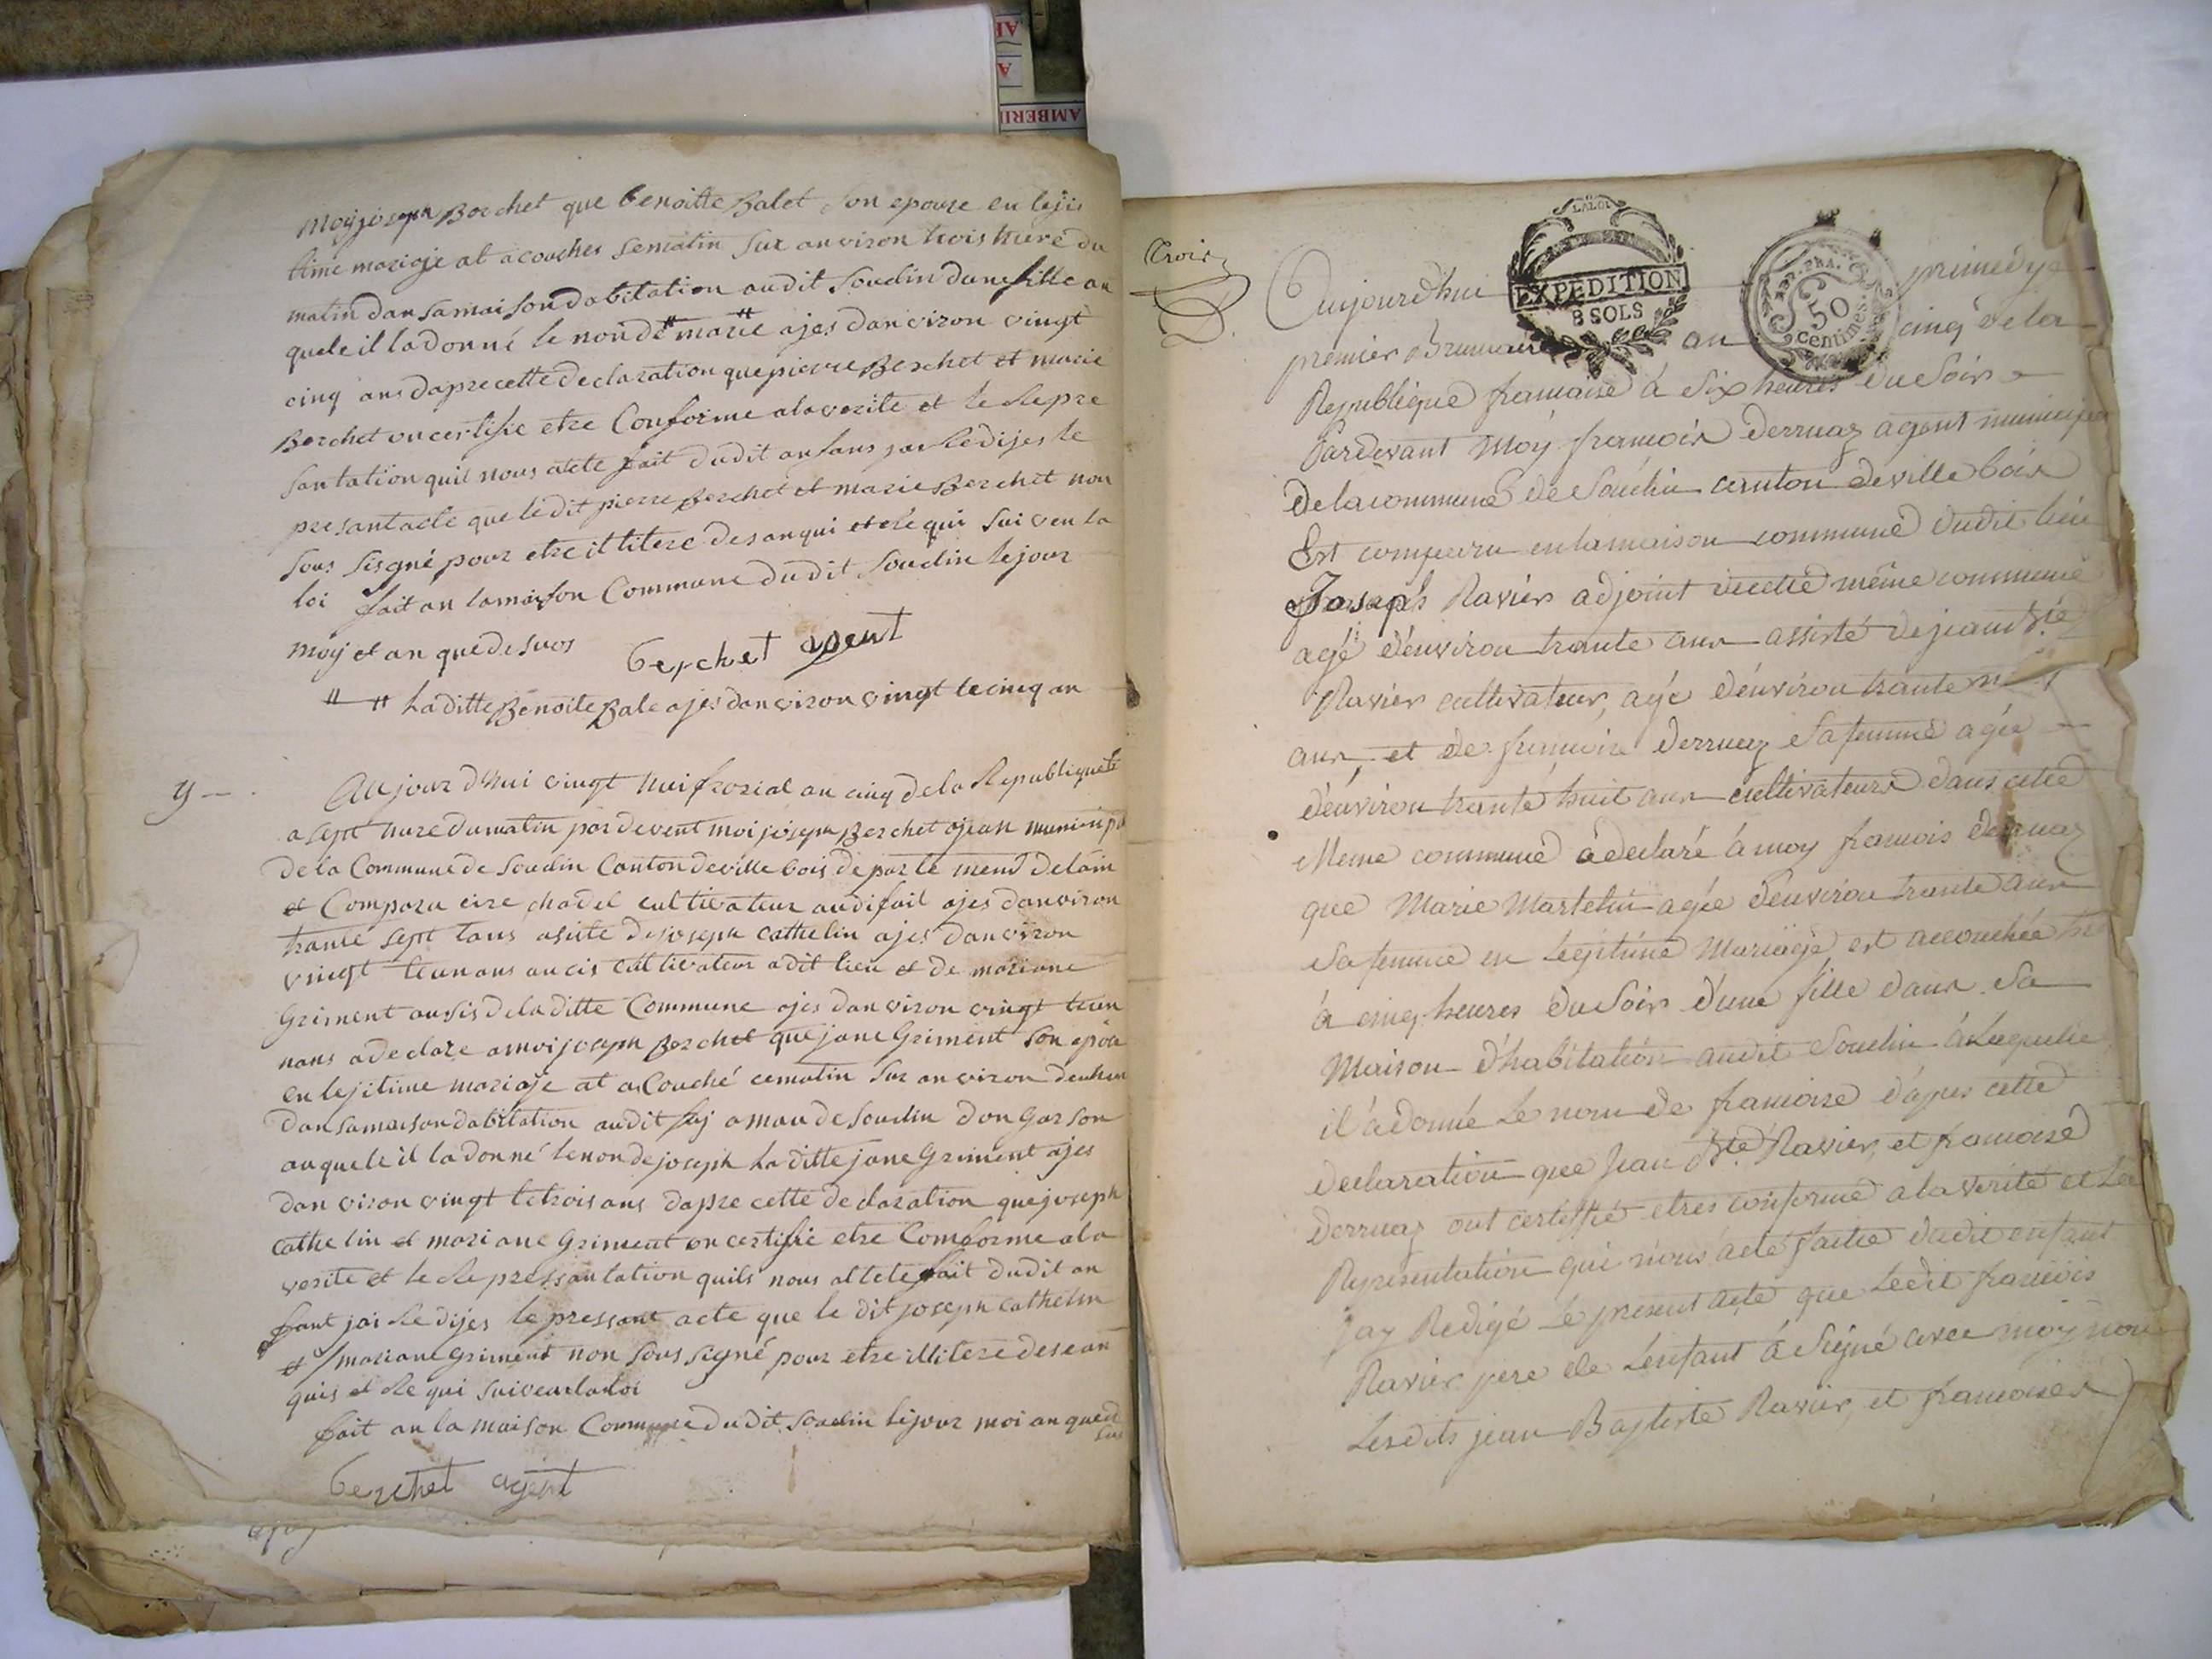 AMBERI
moy joseph Berchet que benoitte Balet son epouse en leji
time mariaje at acouches semalin sur anviron trois hure du
matin dan samaison dabitation audit Soudin dune fille an
quele il ladonné le non de marie ajes danviron vingt
cinq ans dapre cette declaration que pierre Berchet et marie
Berchet on certifie etre Conforme alaverite et le Repre
santation quil nous atete fait dudit anfans jai Redijes le
presant acte que ledit pierre Berchet et marie Berchet non
sous signé pour etre ilitere des an qui et re qui suiven la
loi fait an lamaison Commune dudit Soudin lejour
moy et an que desuos berchet agent
laditte Benoite Bale ajes danviron vingt lecinq an
y —
Aujourdhui vingt nuif frorial an cinq de la Republique
a sept hure dumatin par devent moi joseph Berchet ajean munisipal
de la Commune de Soudin Canton deville bois depar le ment delain
et Comparu cire chadel cultivateur audi fait ajes danviron
trante sept tans asiste dejoseph Cathelin ajes danviron
vingt leunans aucis cultivateur adit lieu et de mariane
Griment ausis deladitte Commune ajes danviron vingt leun
nans adeclare amoi joseph Berchet que jane Griment son epou
en lejitime mariaje at aCouché cematin sur anviron deuhur
dan samaison dabitation audit faj aman de Soudin don Garson
auquele il ladonné lenon de joseph laditte jane Griment ajes
danviron vingt letrois ans dapre cette declaration que joseph
Cathelin et mariane Griment on certifie etre Comforme ala
verite et le Repressantation quils nous attete fait dudit an
fant jai Redijes le pressant acte que le dit joseph Cathelin
et mariane Griment non sous signé pour etre illitere desean
quis et Re qui suivenlaloi
fait an la maison Commune dudit Soudin lejour moi an que de
sus
berchet agent
Croix
LALOI
EXPEDITION
8 SOLS
50
Centimes
Aujourdhui primedy
premier Brumaire an cinqe de la
Republique francaise à six heures du Soir
Pardevant Moy francois Derruaz agent municipal
de la commune de Soudin canton de ville bois
Est comparu en la maison commune dudit lieu
Joseph Ravier adjoint decette même commune
agé d'environ trante ans assisté de jean bte
Ravier cultivateur, agé d'environ trante
ans, et de francoise Derruaz Sa femme agée
d'environ trante huit ans cultivateurs dans cette
Meme commune à declaré à moy francois Derruaz
que Marie Martelin agée d'environ trante ans
Sa femme en Legitime Mariage est accouchée
à cinq heures du Soir d'une fille dans Sa
Maison d'habitation audit Soudin à Laquelle
il à donné Le nom de francoise d'apres cette
declaration que Jean Bte Ravier, et francoise
Derruaz ont certiffié etres conforme a la verité et La
Representation qui nous àeté faitte dudit enfant
Jay Redigé Le present acte que Ledit francois
Ravier pere de Lenfant à Signé avec moy non
Lesdits jean Baptiste Ravier, et francoise